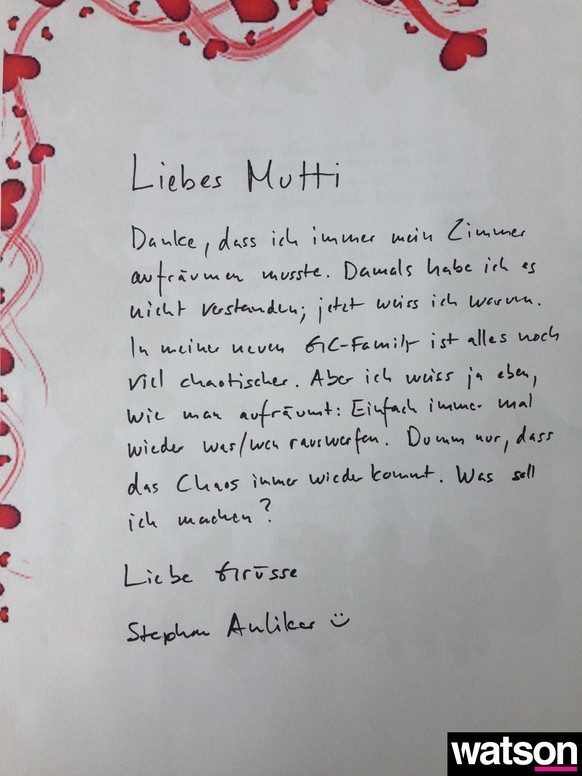 Liebes Mutti
Danke, dass ich immer mein Zimmer
aufräumen musste. Damals habe ich es
nicht verstanden; jetzt weiss ich warum.
In meiner neuen GC-Family ist alles noch
viel chaotischer. Aber ich weiss ja eben,
wie man aufräumt: Einfach immer mal
wieder was/wen rauswerfen. Dumm nur, dass
das Chaos immer wieder kommt. Was soll
ich machen?
Liebe Grüsse
Stephan Anliker
watson